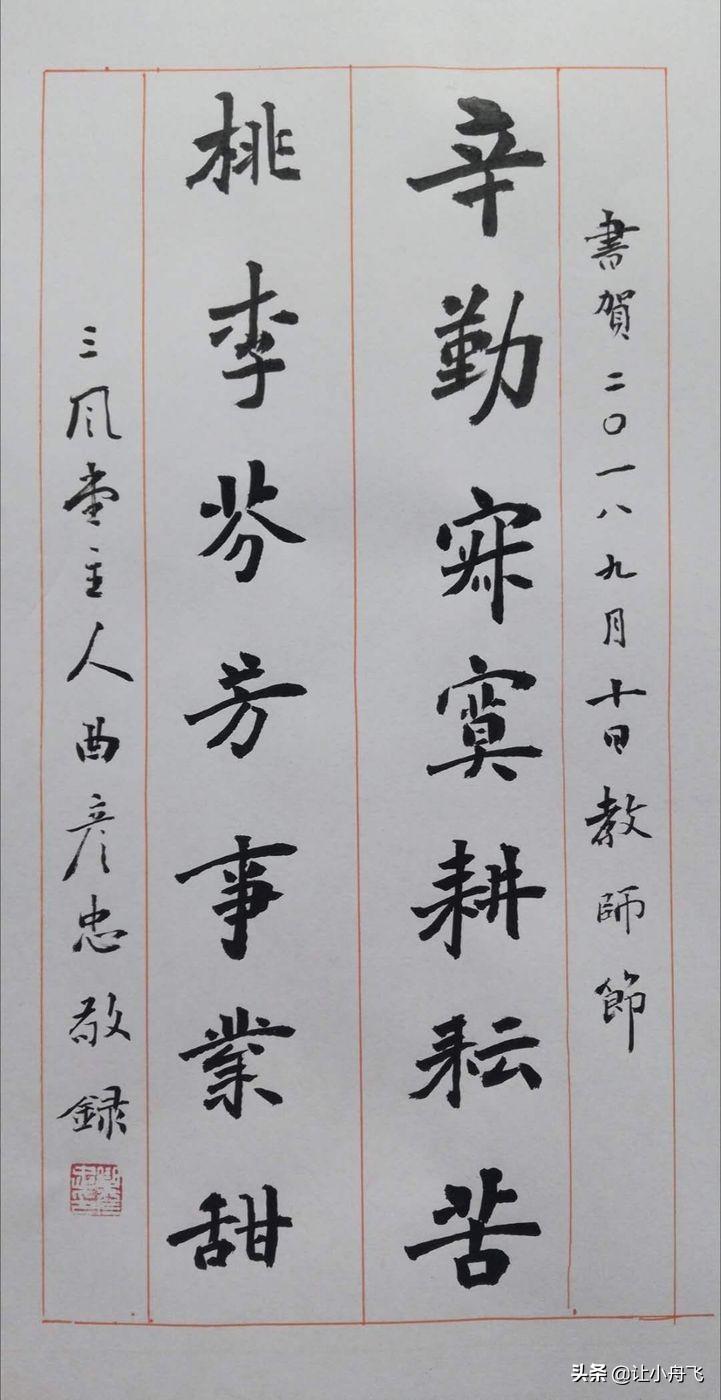 書賀二〇一八九月十日教師節
辛勤寂寞耕耘苦
桃李芬芳事業甜
三風堂主人曲彦忠敬録
头条 @让小舟飞